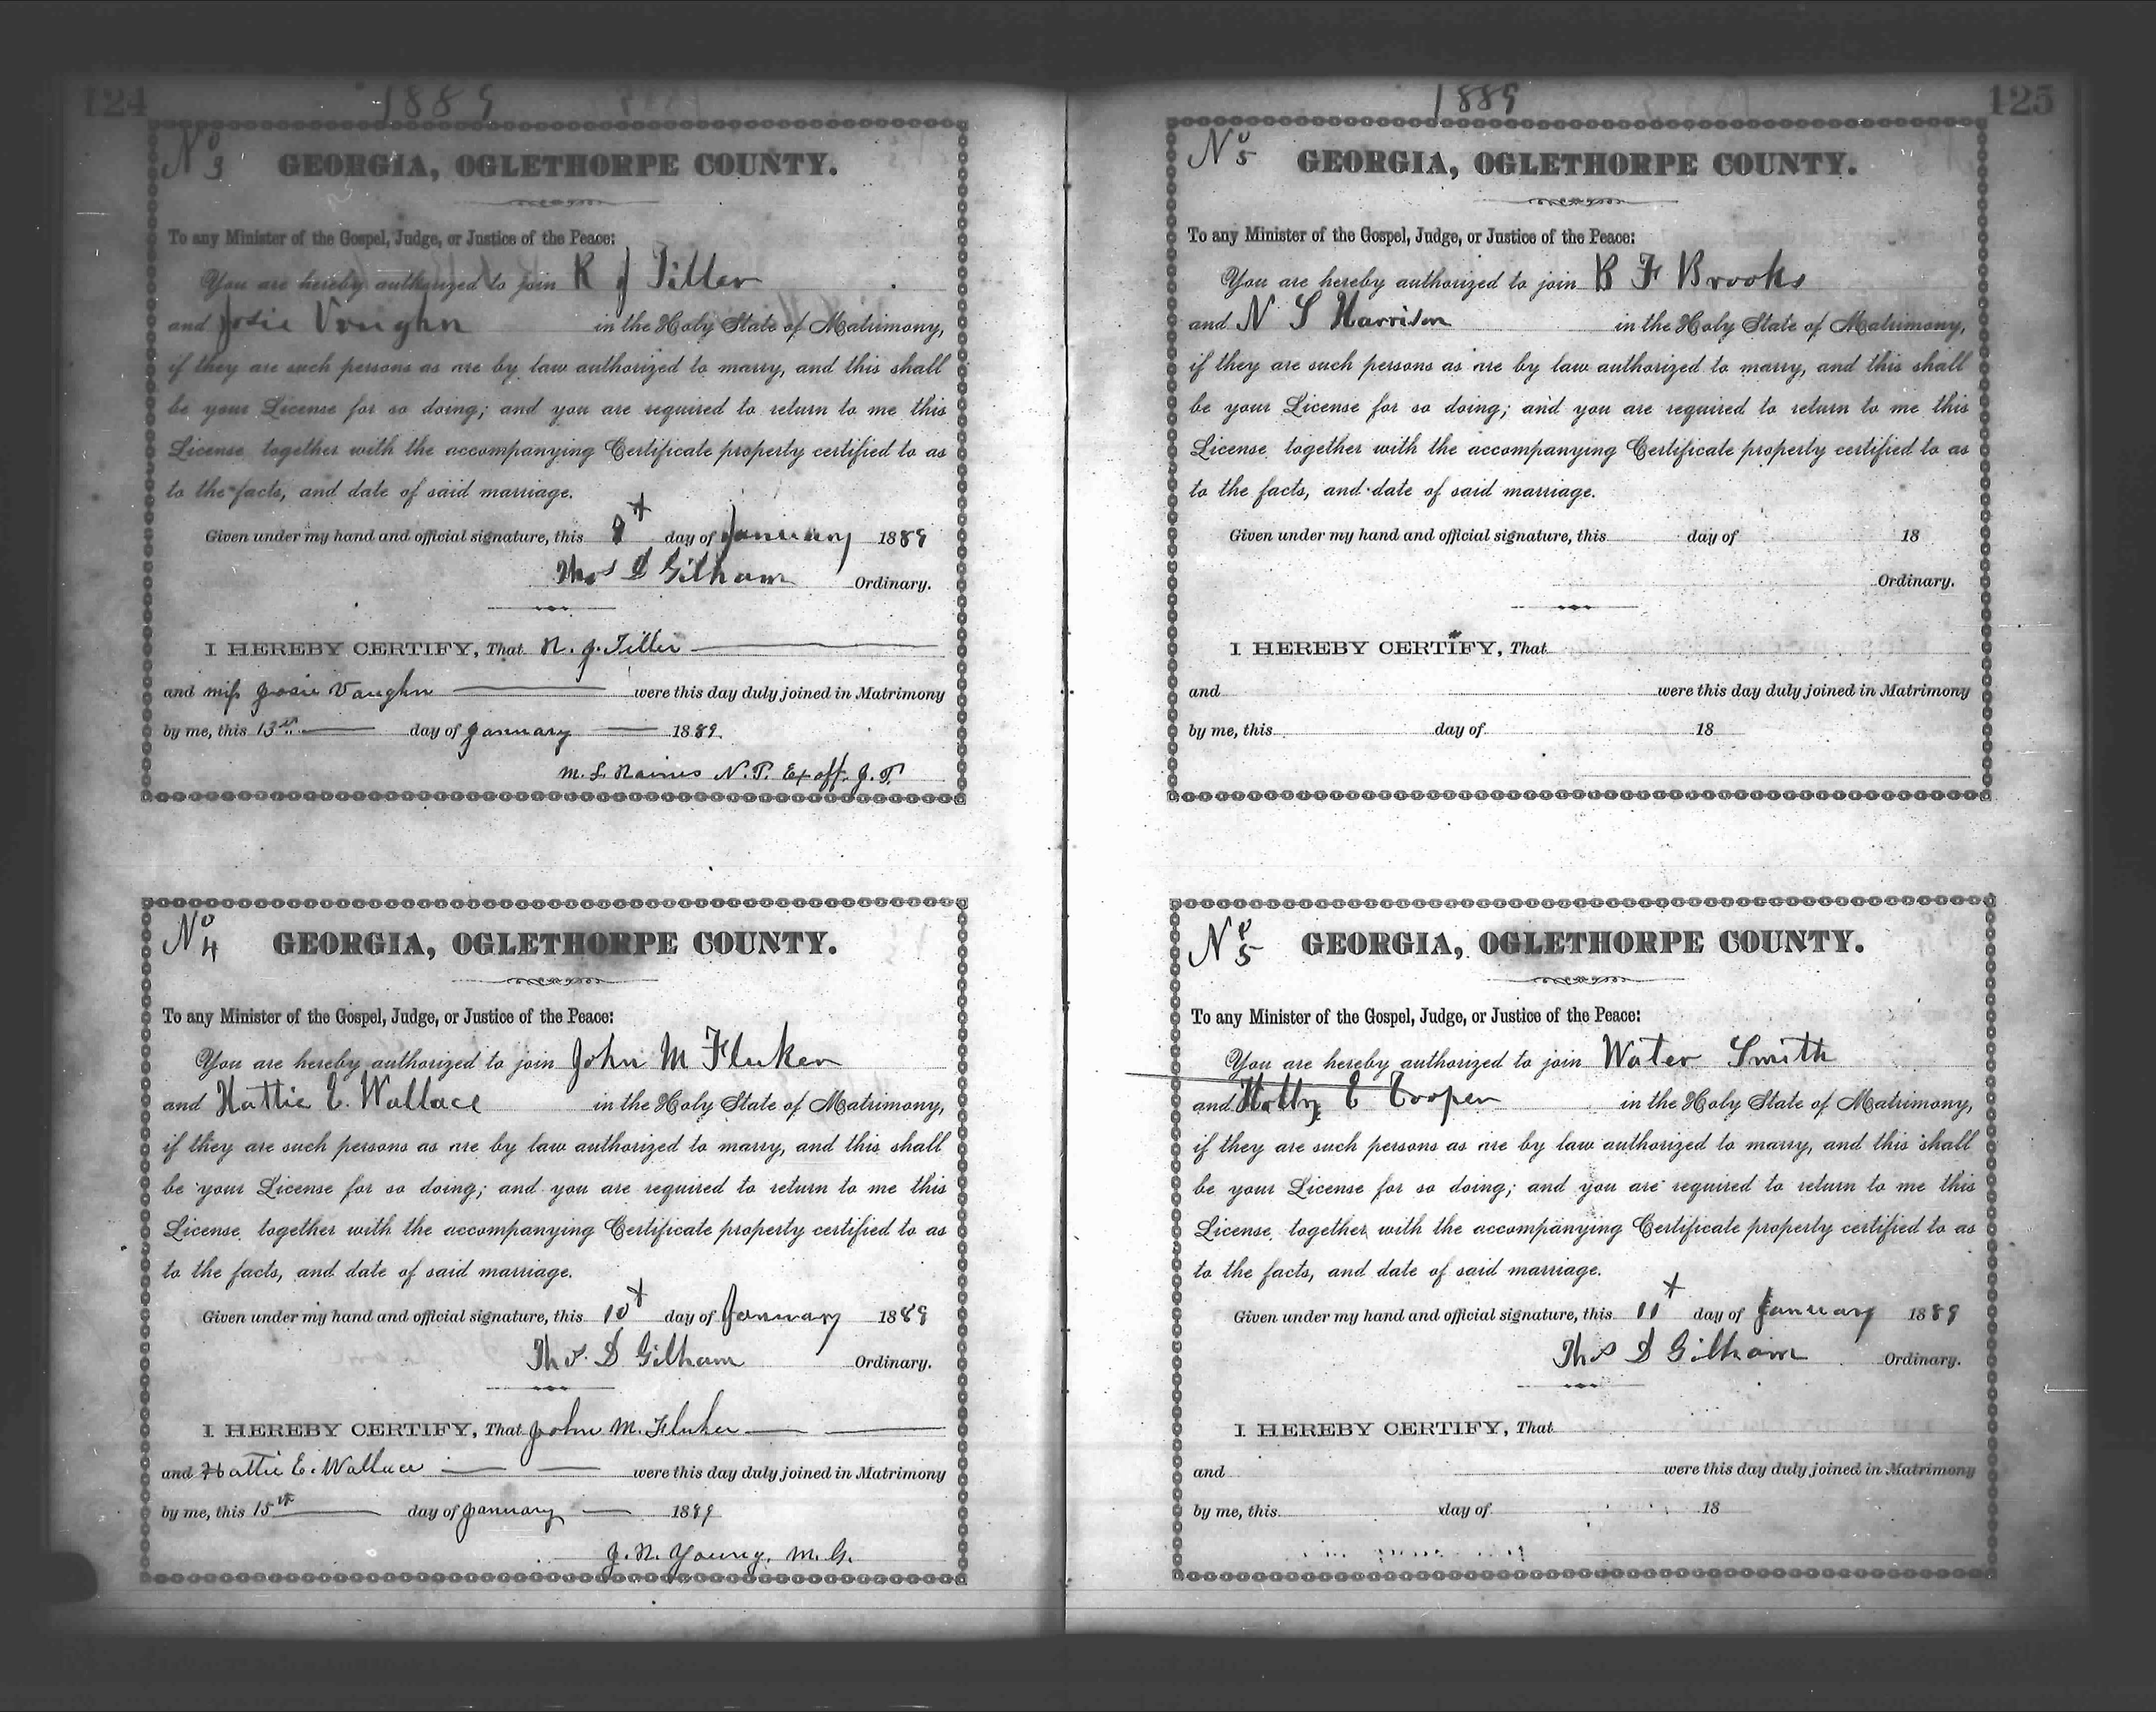 124
1889
No 3
GEORGIA, OGLETHORPE COUNTY.
To any Minister of the Gospel, Judge, or Justice of the Peace:
You are hereby authorized to join R J Tiller
and Josie Vaughn in the Holy State of Matrimony,
if they are such persons as are by law authorized to marry, and this shall
be your License for so doing; and you are required to return to me this
License together with the accompanying Certificate property certified to as
to the facts, and date of said marriage.
Given under my hand and official signature, this day of January 1889
Thos D Gilham Ordinary.
I HEREBY CERTIFY, That R. J. Tiller
and miss Josie Vaughn were this day duly joined in Matrimony
by me, this 13th day of January 1889.
M. L. Raines N. P. Ex off. J. P.
No 4
GEORGIA, OGLETHORPE COUNTY.
To any Minister of the Gospel, Judge, or Justice of the Peace:
You are hereby authorized to join John M Fluker
and Hattie E. Wallace in the Holy State of Matrimony,
if they are such persons as are by law authorized to marry, and this shall
be your License for so doing; and you are required to return to me this
License together with the accompanying Certificate property certified to as
to the facts, and date of said marriage.
Given under my hand and official signature, this 10t day of January 1889
Tho s. D Gilham Ordinary.
I HEREBY CERTIFY, That John M. Fluker
and Hattie E. Wallace were this day duly joined in Matrimony
by me, this 15th day of January 1889
J. N. Young, M. G.
125
1889
No 5
GEORGIA, OGLETHORPE COUNTY.
To any Minister of the Gospel, Judge, or Justice of the Peace:
You are hereby authorized to join B F Brooks
and N S Harrison in the Holy State of Matrimony,
if they are such persons as are by law authorized to marry, and this shall
be your License for so doing; and you are required to return to me this
License together with the accompanying Certificate property certified to as
to the facts, and date of said marriage.
Given under my hand and official signature, this day of 18
Ordinary.
I HEREBY CERTIFY, That
and were this day duly joined in Matrimony
by me, this day of 18
No 5
GEORGIA, OGLETHORPE COUNTY.
To any Minister of the Gospel, Judge, or Justice of the Peace:
You are hereby authorized to join Water Smith
and E Cooper in the Holy State of Matrimony,
if they are such persons as are by law authorized to marry, and this shall
be your License for so doing; and you are required to return to me this
License together with the accompanying Certificate property certified to as
to the facts, and date of said marriage.
Given under my hand and official signature, this 11t day of January 1889
Thos D Gilham Ordinary.
I HEREBY CERTIFY, That
and were this day duly joined in Matrimony
by me, this day of 18